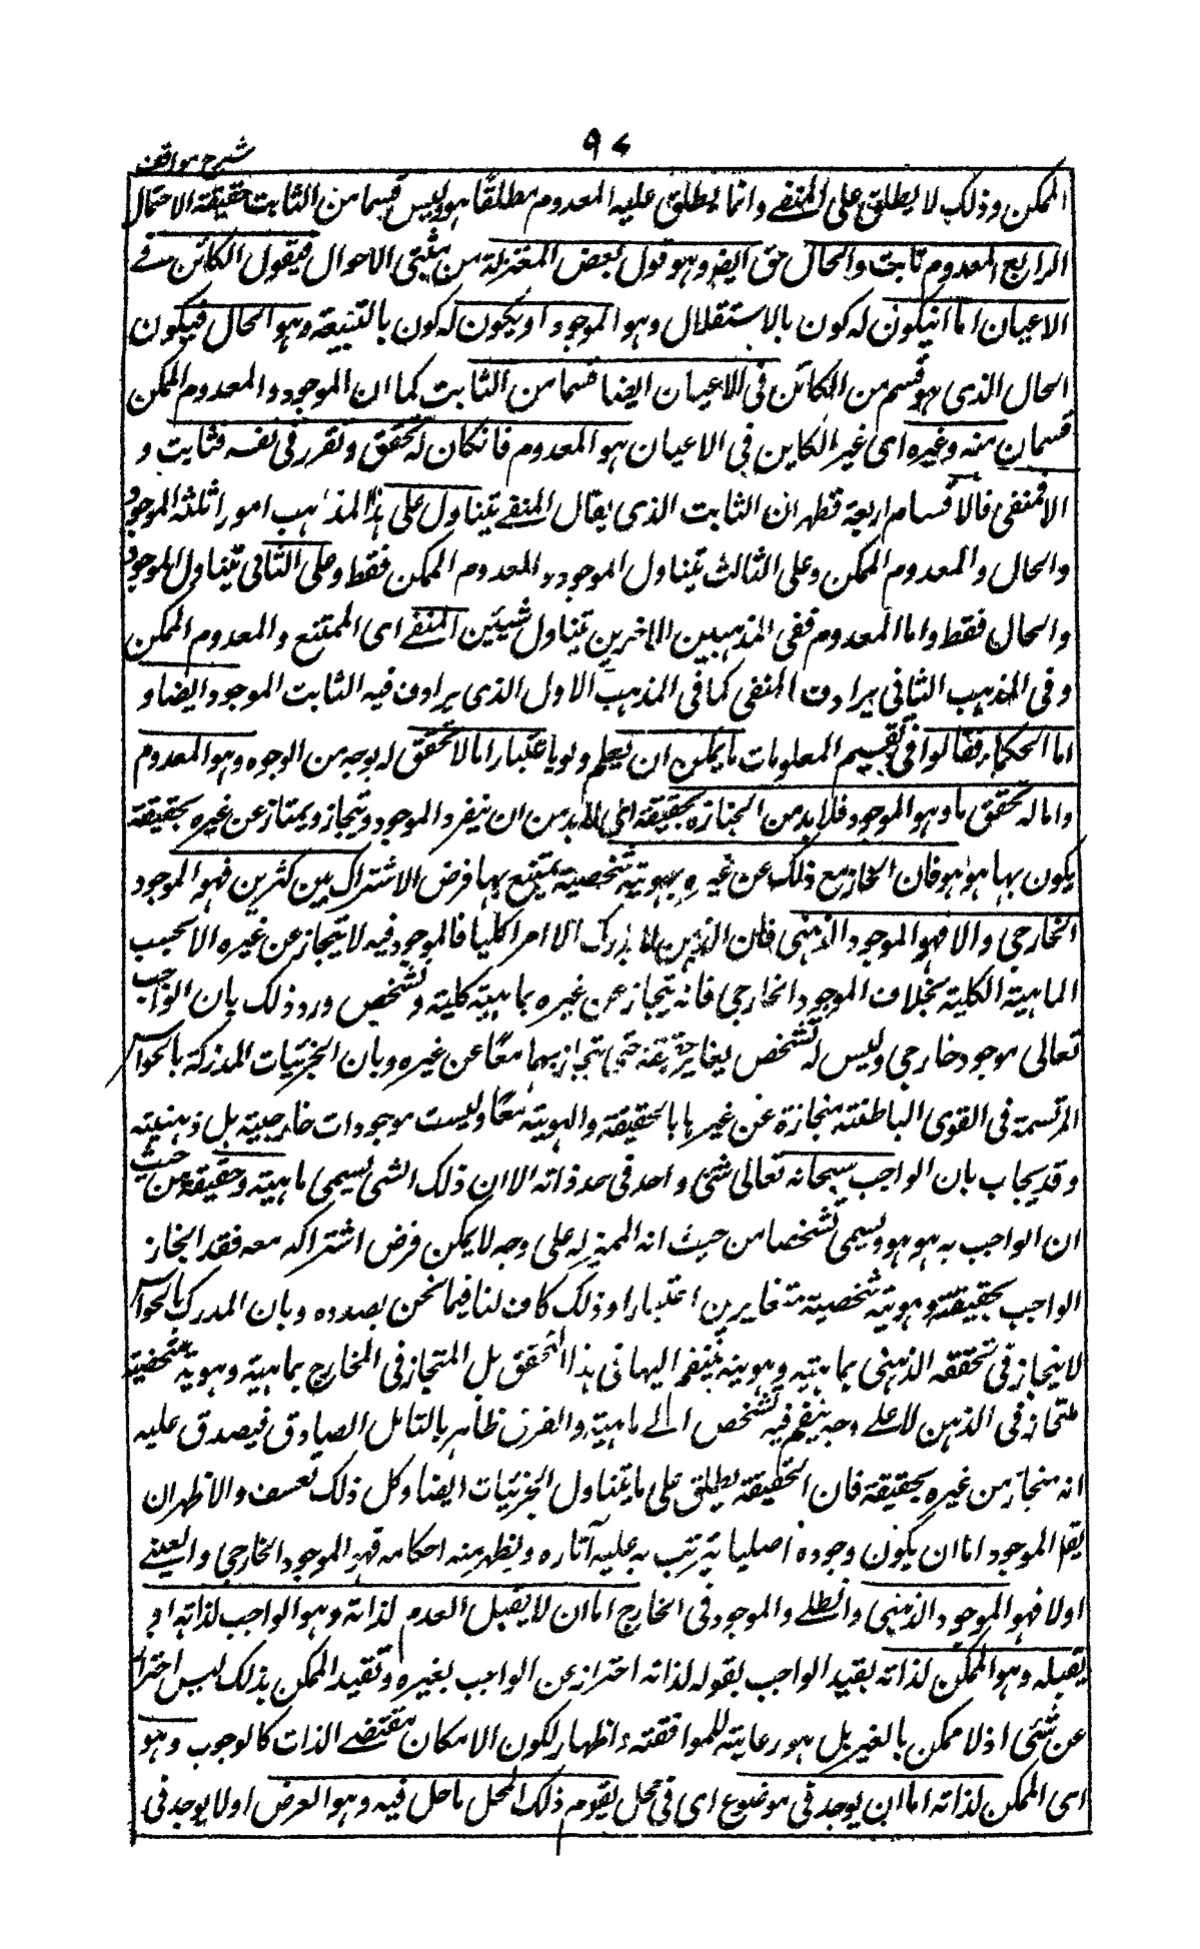 شرح مواقف
٩٤
الممكن وذلك لا يطلق على المنفے وانما يطلق عليه المعدوم مطلقا هو ليس قسما من الثابت حقيقة الاحتمال
الرابع المعدوم ثابت والحال حق ايضا وهو قول بعض المعتزلة من مثبتى الاحوال فيقول الكائن فے
الاعيان اما انيكون له كون بالاستقلال وهو الموجود او يكون له كون بالتبعية وهو الحال فيكون
الحال الذى هو قسم من الكائن فى الاعيان ايضا قسما من الثابت كما ان الموجود والمعدوم الممكن
قسمان منه وغيره اى غير الكاين فى الاعيان هو المعدوم فانكان له تحقق وتقرر فى نفسه فثابت و
الا فمنفى فالاقسام اربعة فظهر ان الثابت الذى يقابل المنفے يتناول على هذا المذهب امورا ثلثة الموجود
والحال والمعدوم الممكن وعلى الثالث يتناول الموجود والمعدوم الممكن فقط وعلى الثانى يتناول الموجود
والحال فقط واما المعدوم ففى المذهبين الاخرين يتناول شيئين المنفے اى الممتنع والمعدوم الممكن
وفى المذهب الثانى يرادف المنفى كما فى المذهب الاول الذى يرادف فيه الثابت الموجود ايضا و
اما الحكماء فقالوا فى تقسيم المعلومات ما يمكن ان يعلم ولو باعتبار اما لا تحقق له بوجه من الوجوه وهو المعدوم
واما له تحقق ما وهو الموجود فلا بد من انحيازه بحقيقة اى لا بد من ان ينفرد الموجود ويتحاز ويمتاز عن غيره بحقيقة
يكون بها هو هو فان انحاز مع ذلك عن غيره بهوية شخصية يمتنع بها فرض الاشتراك بين كثرين فهو الموجود
الخارجى والا فهو الموجود الذهنى فان الذهن لا يدرك الا امرا كليا فالموجود فيه لا يتحاز عن غيره الا بحسب
الماهية الكلية بخلاف الموجود الخارجى فانه يتحاز عن غيره بماهية كلية وتشخص ورد ذلك بان الواجب
تعالى موجود خارجى وليس له تشخص يغاير حقيقته حتى يتحاز بهما معا عن غيره وبان الجزئيات المدركة بالحواس
المرتسمة فى القوى الباطنة منحازة عن غيرها بالحقيقة والهوية معا وليست موجودات خارجية بل ذهنية
وقد يجاب بان الواجب سبحانه تعالى شئ واحد فى حد ذاته الا ان ذلك الشئ يسمى ماهية وحقيقة من حيث
ان الواجب به هو هو ويسمى تشخصا من حيث انه المميز له على وجه لا يمكن فرض اشتراكه معه فقد انحاز
الواجب بحقيقة وهوية شخصية متغايرين اعتبارا وذلك كاف لنا فيما نحن بصدده وبان المدرك بالحواس
لا ينحاز فى تحققه الذهنى بماهية وهوية ينضم اليها فى هذا التحقق بل المتحاز فى الخارج بماهية وهوية شخصية
متحاز فى الذهن لا علے وجه ينضم فيه تشخص الے ماهية والفرق ظاهر بالتامل الصادق فيصدق عليه
انه منحاز من غيره بحقيقة فان الحقيقة يطلق على ما يتناول الجزئيات ايضا وكل ذلك تعسف والاظهر ان
يقم الموجود اما ان يكون وجوده اصليا يترتب به عليه آثاره ويظهر منه احكامه فهو الموجود الخارجى والعينے
اولا فهو الموجود الذهنى والظلے والموجود فى الخارج اما ان لا يقبل العدم لذاته وهو الواجب لذاته او
يقبله وهو الممكن لذاته بقيد الواجب بقوله لذاته احترازا عن الواجب بغيره وتقيد الممكن بذلك ليس احترازا
عن شئ اذ لا ممكن بالغير بل هو رعاية للموافقة واظهار لكون الامكان مقتضے الذات كالوجوب وهو
اى الممكن لذاته اما ان يوجد فى موضوع اى فى محل يقوم ذلك المحل ما حل فيه وهو العرض اولا يوجد فى